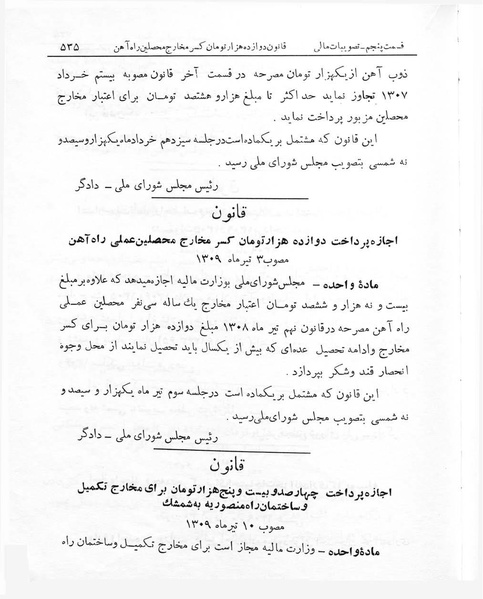 قسمت پنجم - تصویبات مالی قانون دوازده هزار تومان کسر مخارج محصلین راه آهن ۵۳۵
ذوب آهن از یکهزار تومان مصرحه در قسمت آخر قانون مصوبه بیستم خرداد
۱۳۰۷ تجاوز نماید حداکثر تا مبلغ هزار و هشتصد تومان برای اعتبار مخارج
محصلین مزبور پرداخت نماید .
این قانون که مشتمل بر یکماده است در جلسه سیزدهم خرداد ماه یکهزار و سیصد و
نه شمسی بتصویب مجلس شورای ملی رسید .
رئیس مجلس شورای ملی - دادگر
قانون
اجازه پرداخت دوازده هزار تومان کسر مخارج محصلین عملی راه آهن
مصوب ۳ تیر ماه ۱۳۰۹
مادهٔ واحده - مجلس شورای ملی بوزارت مالیه اجازه میدهد که علاوه بر مبلغ
بیست و نه هزار و ششصد تومان اعتبار مخارج یک ساله سی نفر محصلین عملی
راه آهن مصرحه در قانون نهم تیر ماه ۱۳۰۸ مبلغ دوازده هزار تومان برای کسر
مخارج و ادامه تحصیل عده‌ای که بیش از یکسال باید تحصیل نمایند از محل وجوه
انحصار قند و شکر بپردازد .
این قانون که مشتمل بر یکماده است در جلسه سوم تیر ماه یکهزار و سیصد و
نه شمسی بتصویب مجلس شورای ملی رسید .
رئیس مجلس شورای ملی - دادگر
قانون
اجازه پرداخت چهارصد و بیست و پنج هزار تومان برای مخارج تکمیل
و ساختمان راه منصوریه به شمشک
مصوب ۱۰ تیر ماه ۱۳۰۹
مادهٔ واحده - وزارت مالیه مجاز است برای مخارج تکمیل و ساختمان راه